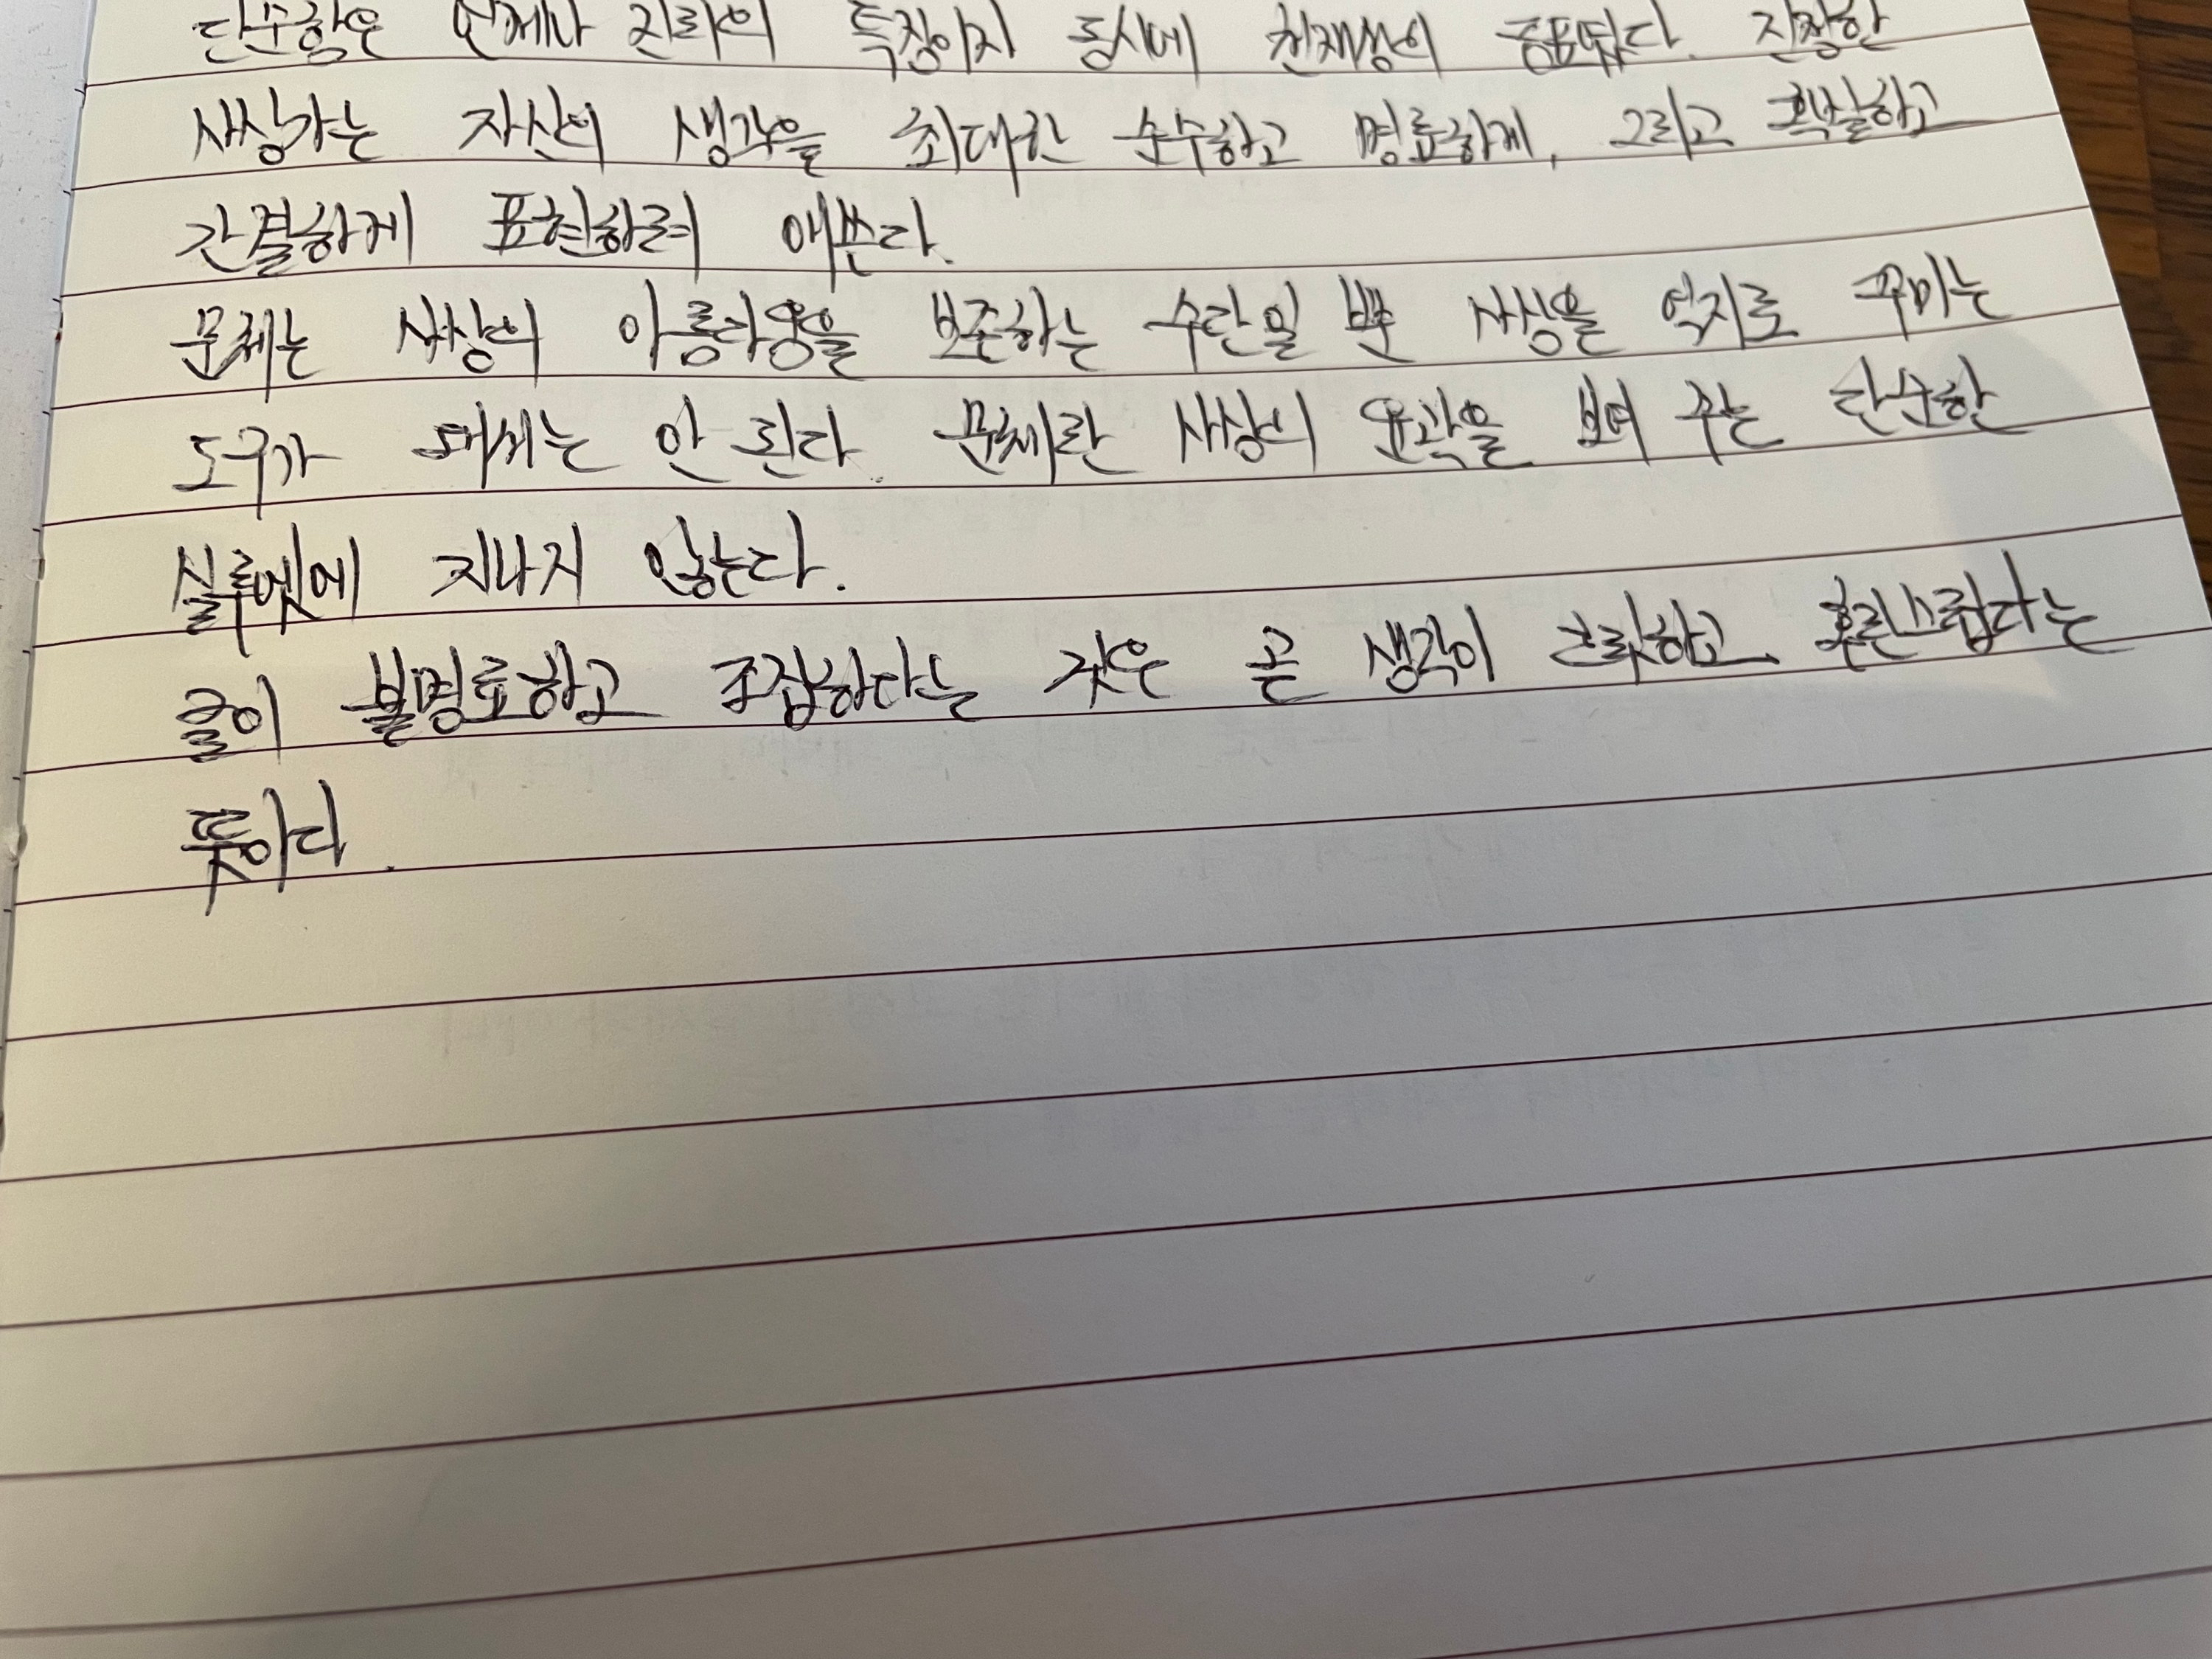 단순함은 언제나 진리의 특징이자 동시에 천재성의 증표였다. 진정한
사상가는 자신의 생각을 최대한 순수하고 명료하게, 그리고 확실하고
간결하게 표현하려 애쓴다.
문체는 사상의 아름다움을 보존하는 수단일 뿐 사상을 억지로 꾸미는
도구가 돼서는 안 된다. 문체란 사상의 윤곽을 보여 주는 단순한
실루엣에 지나지 않는다.
글이 불명료하고 조잡하다는 것은 곧 생각이 흐릿하고 혼란스럽다는
뜻이다.